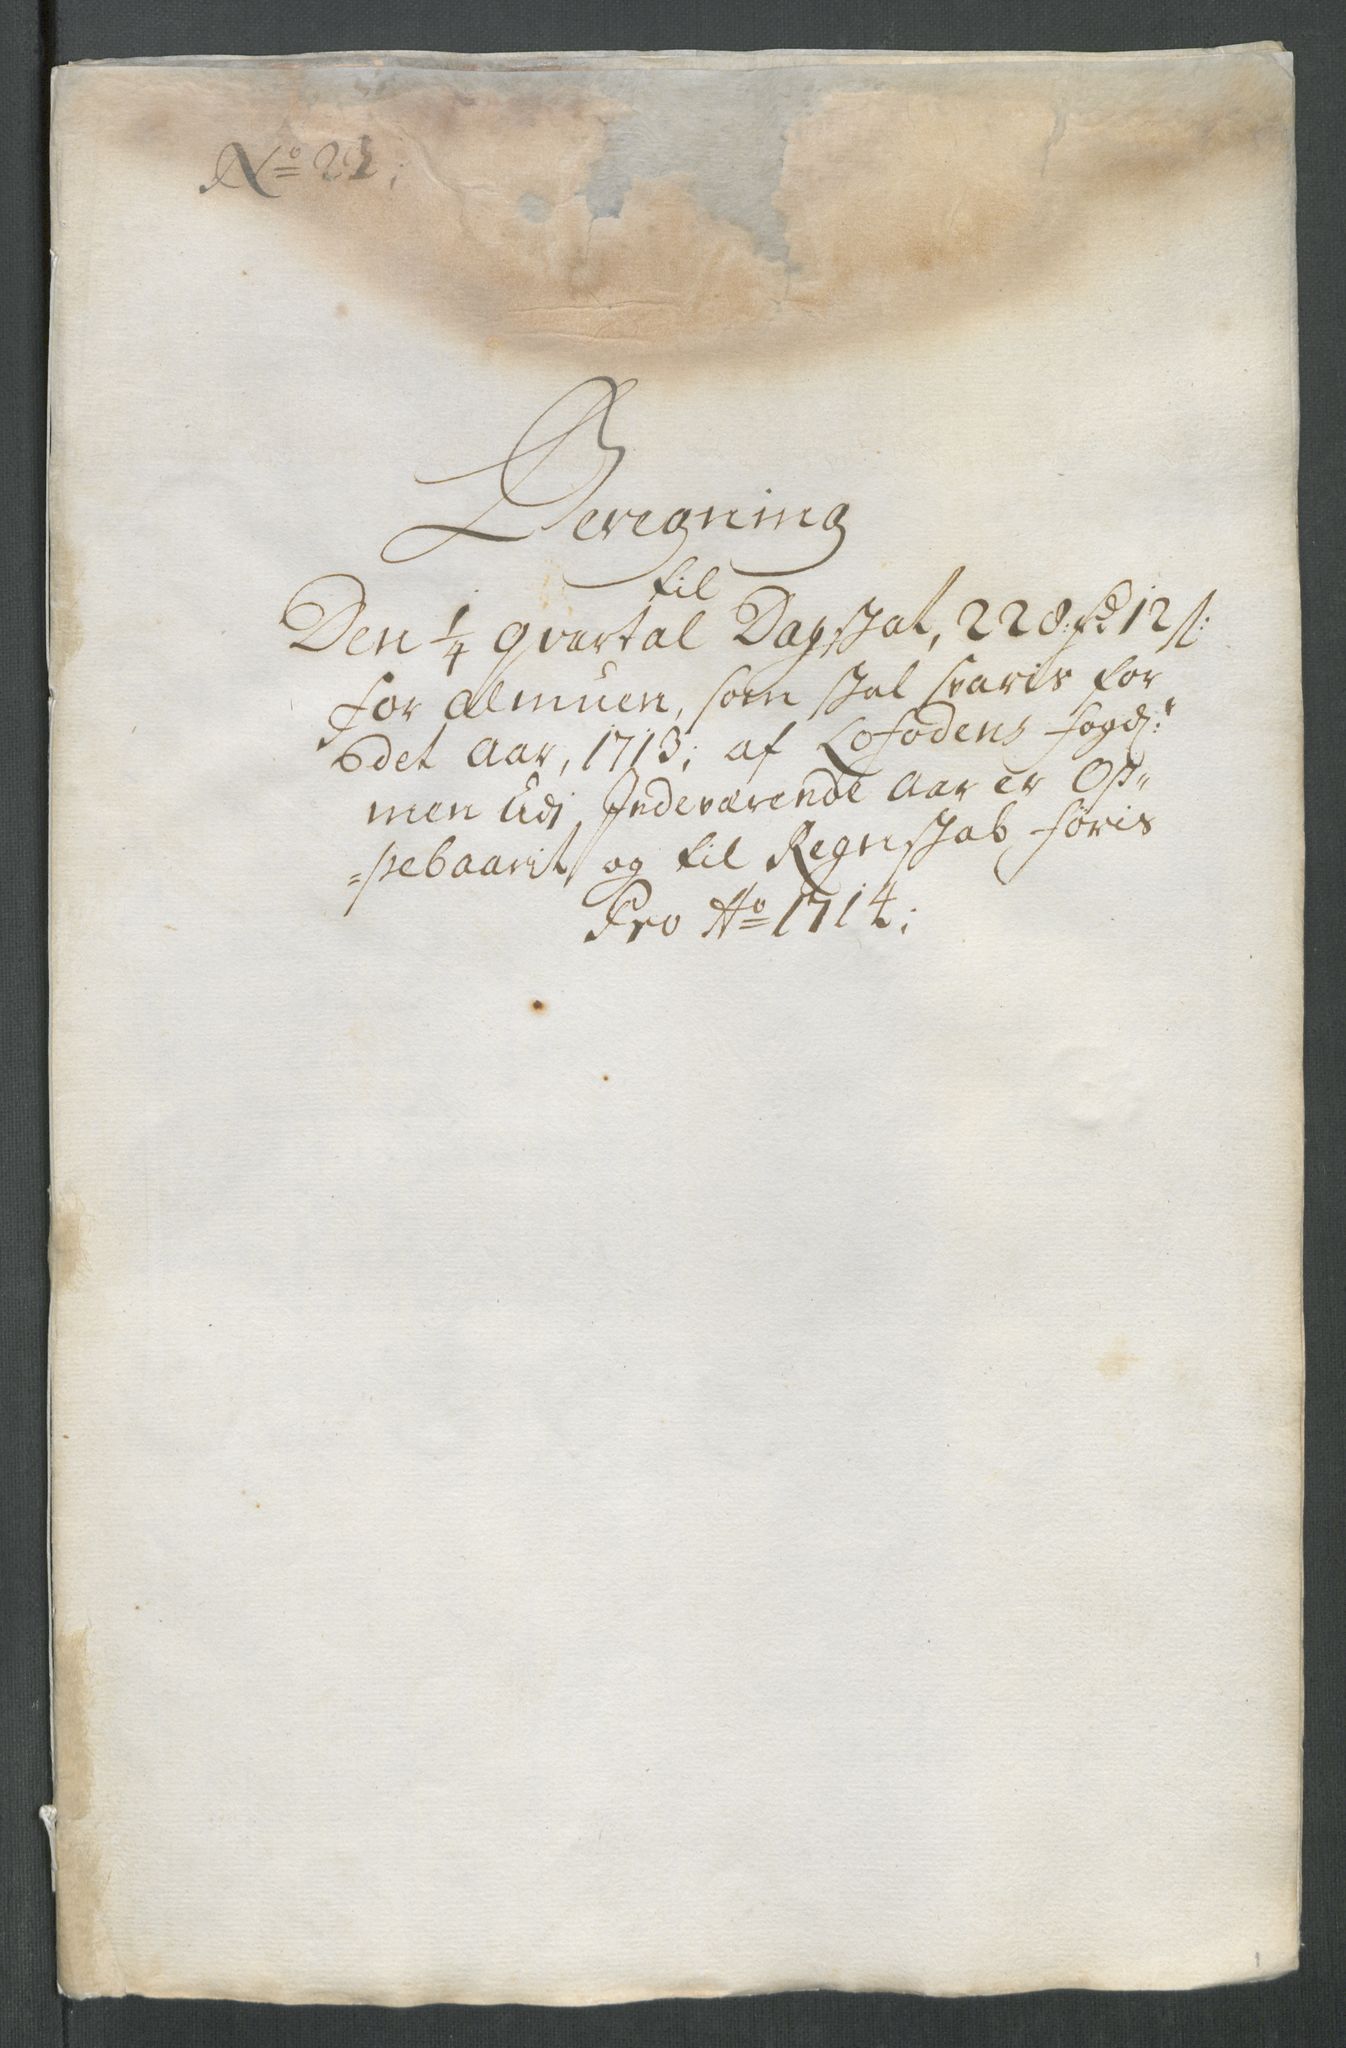 No 22;
Beregning
til
Den 1/4 qvartal Dagskat, 228 rd 12 s:
for Almuen, som skal svaris for
det Aar, 1713; af Lofodens fogd:r
men Udj Indeværende Aar er Op-
=pebaarit og til Regnskab føris
Pro Ao 1714;
1